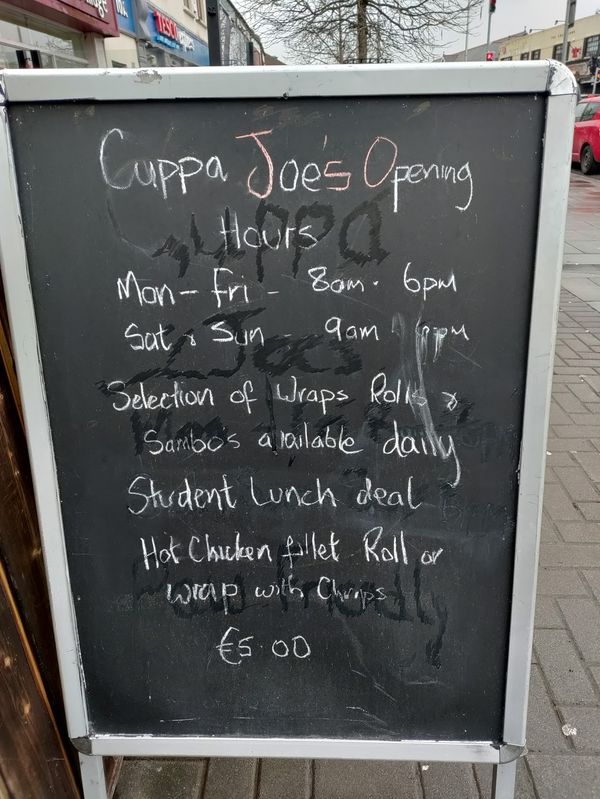 TESCO
Cuppa Joe's Opening
Hours
Mon - Fri - 8am - 6pm
Sat & Sun - 9am pm
Selection of Wraps Rolls &
Sambos available daily
Student Lunch deal
Hot Chicken fillet Roll or
wrap with Chips
€5.00